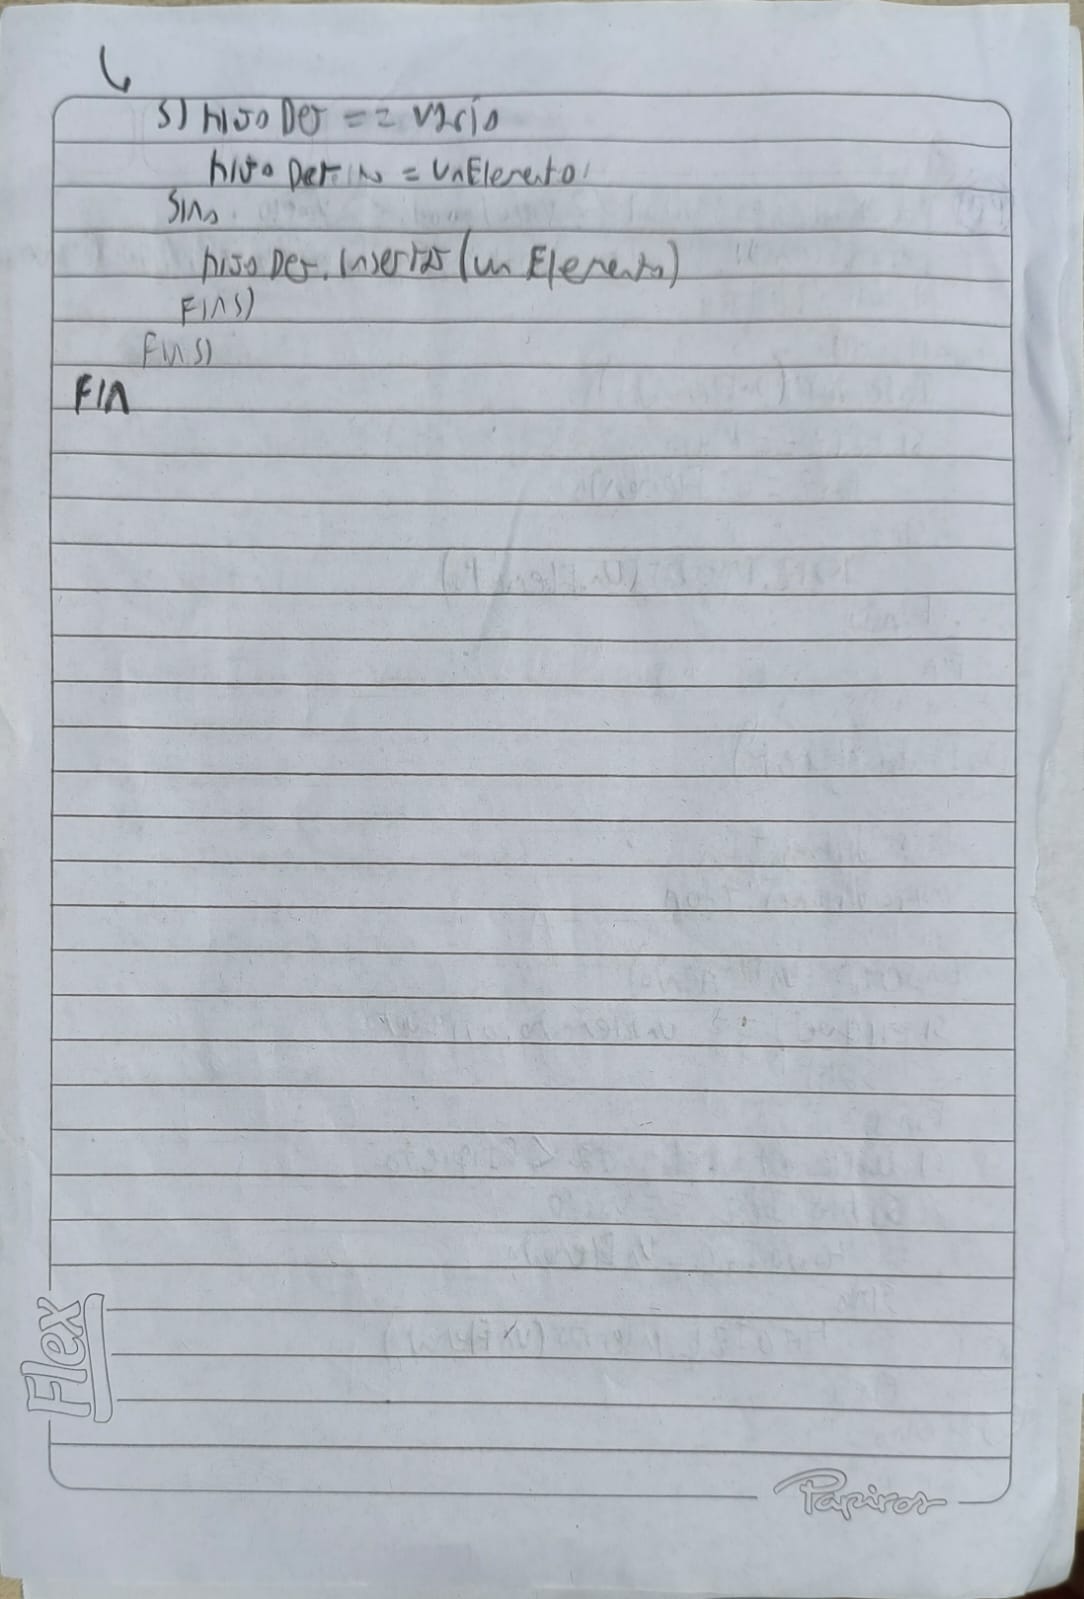 Si hijoDer == vacío
hijoDer = unElemento
Sino
hijoDer.insertar(unElemento)
FinSi
FinSi
FIN
Flex
Papiros